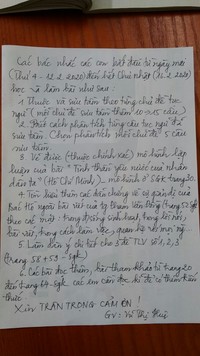 Các bác nhắc các con bắt đầu từ ngày mai
(Thứ 4 - 12.2.2020) đến hết Chủ nhật (.2.2020)
học và làm bài như sau:
1. Thuộc và sưu tầm theo từng chủ đề tục
ngữ (mỗi chủ đề sưu tầm thêm 10->15 câu)
2. Biết cách phân tích từng câu tục ngữ đã
sưu tầm. Chọn phân tích mỗi chủ đề 5 câu
sưu tầm.
3. Vẽ được (thuộc chính xác) mô hình lập
luận của bài "Tinh thần yêu nước của nhân
dân ta" (Hồ Chí Minh), mô hình ở SGK trang 30.
4. Tìm hiểu thêm các dẫn chứng về sự giản dị của
Bác Hồ ngoài bài viết của tg Phạm Văn Đồng (trang 52 sgk)
theo các mặt: trong đời sống sinh hoạt, trong lời nói,
bài viết, trong cách làm việc, quan hệ với mọi người
5. Làm dàn ý chi tiết cho 3 đề TLV số 1, 2, 3
(trang 58 + 59 - sgk)
6. Các bài đọc thêm, bài tham khảo từ trang 20
đến trang 64 - sgk, các em cần đọc kĩ để có thêm kiến
thức.
XIN TRÂN TRỌNG CẢM ƠN!
GV: Võ Thị Huệ